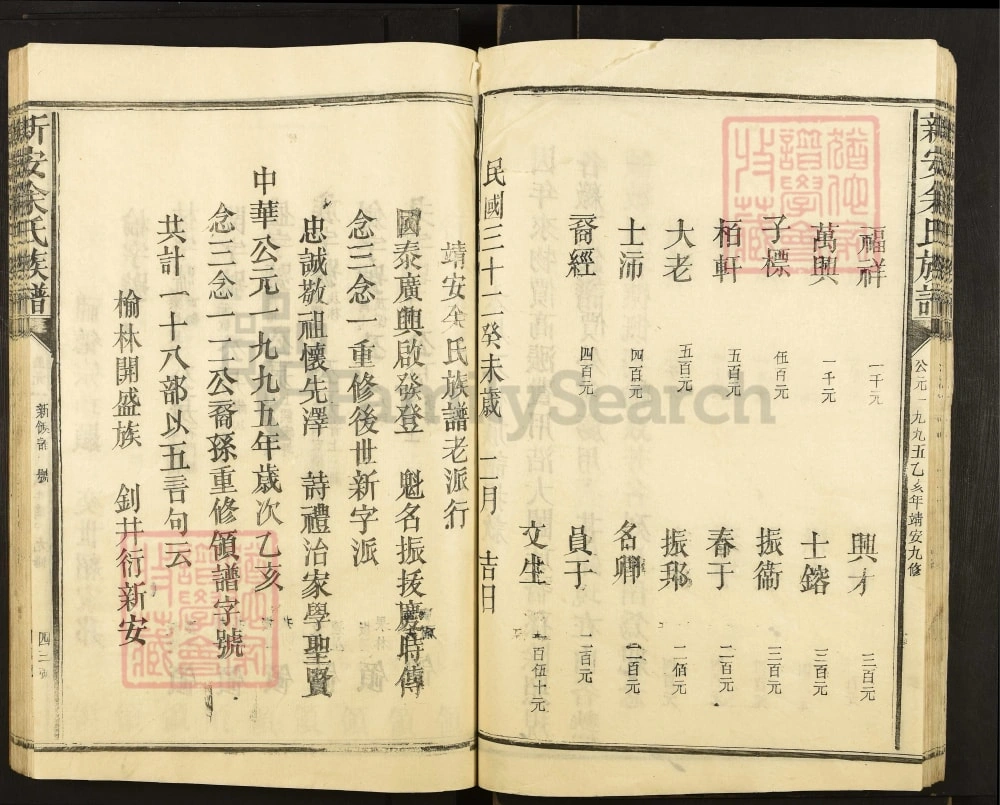 新安余氏族譜
公元一九九五乙亥年靖安九修
福祥 一千元 興才 三百元
萬興 一千元 士鎔 三百元
子標 伍百元 振衞 三百元
柏軒 五百元 春于 二百元
大老 五百元 振邦 二佰元
士沛 四百元 名卿 二百元
裔經 四百元 員于 二百元
文生 百伍十元
民國三十二癸未歲 二月 吉日
靖安余氏族譜老派行
國泰廣興啟發登 魁名振拔慶時傳
念三念一重修後世新字派
忠誠敬祖懷先澤 詩禮治家學聖賢
中華公元一九九五年歲次乙亥
念三念一二公裔孫重修領譜字號
共計一十八部以五言句云
榆林開盛族 釗井衍新安
新安余氏族譜
FamilySearch